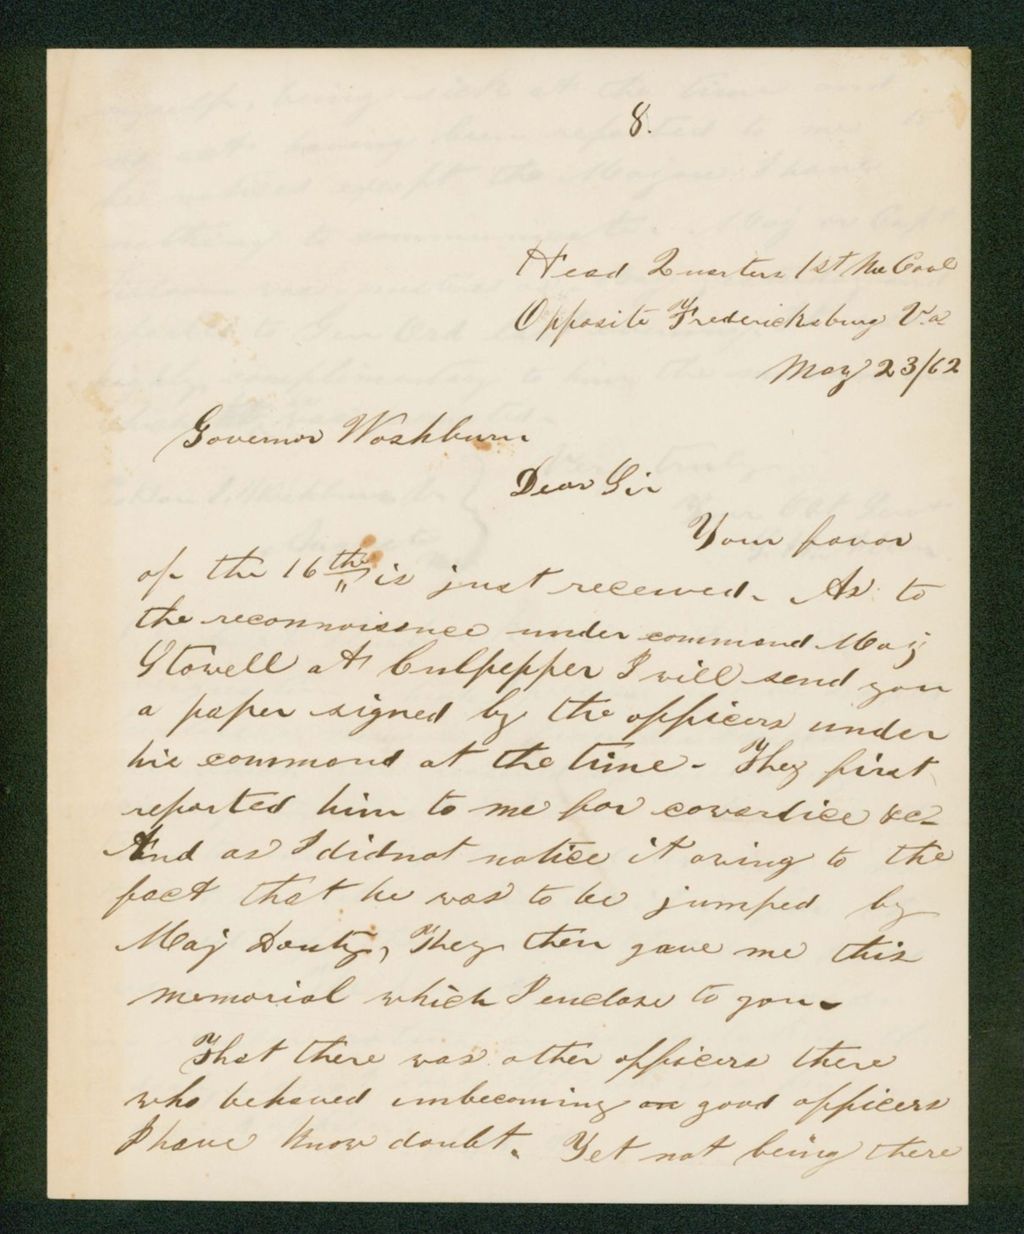 8.
Head Quarters 1st Me Cavl
Opposite Fredericksburg Va
May 23/62
Governor Washburn
Dear Sir
Your favor
of the 16th is just received. As to
the reconnoisence under command Maj
Stowell at Culpepper I will send you
a paper signed by the officers under
his command at the time - They first
reported him to me for cowardice &c -
And as I did not notice it owing to the
fact that he was to be jumped by
Maj Douty, They then gave me this
memorial which I enclose to you -
That there was other officers there
who behaved unbecoming good officers
I have know doubt. Yet not being there